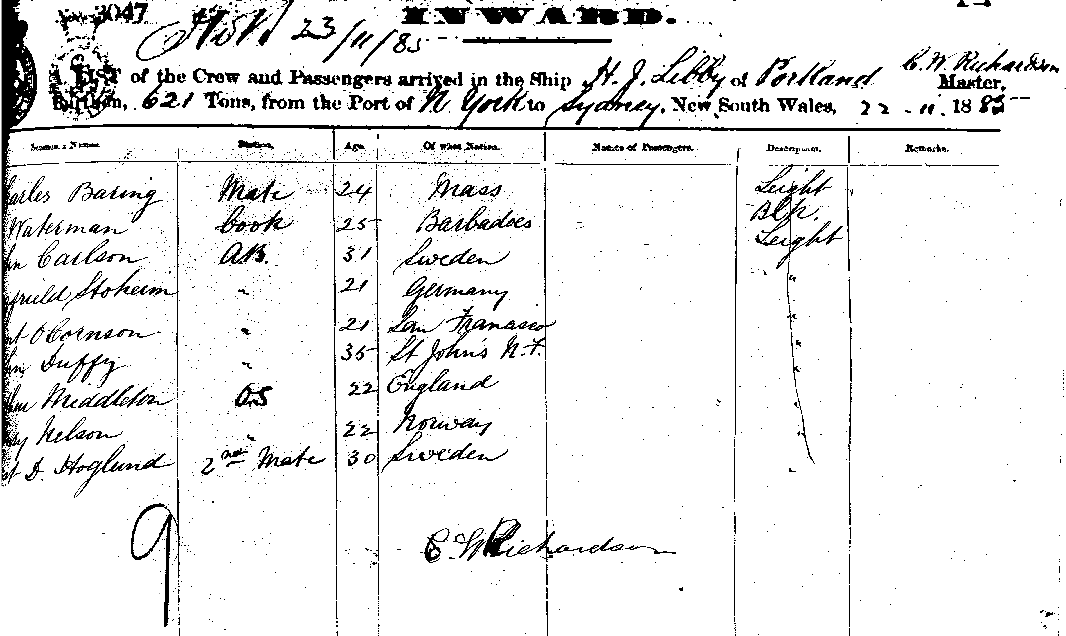 3047
INWARD.
23/11/85
A LIST of the Crew and Passengers arrived in the Ship H. J. Libby of Portland C. W. Richardson Master,
Burthen, 621 Tons, from the Port of N. York to Sydney, New South Wales, 22-11-1885
Seaman's Names. Station. Age. Of what Nation. Names of Passengers. Description. Remarks.
arles Baring Mate 24 Mass Leight
Waterman Cook 25 Barbadoes Blk.
hn Carlson AB. 31 Sweden Leight
Stoheim " 21 Germany "
OCornson " 21 San Francisco "
Duffy " 35 St John's N.F. "
Middleton OS 22 England "
Nelson " 22 Norway "
D. Hoglund 2nd Mate 30 Sweden "
9
C W Richardson